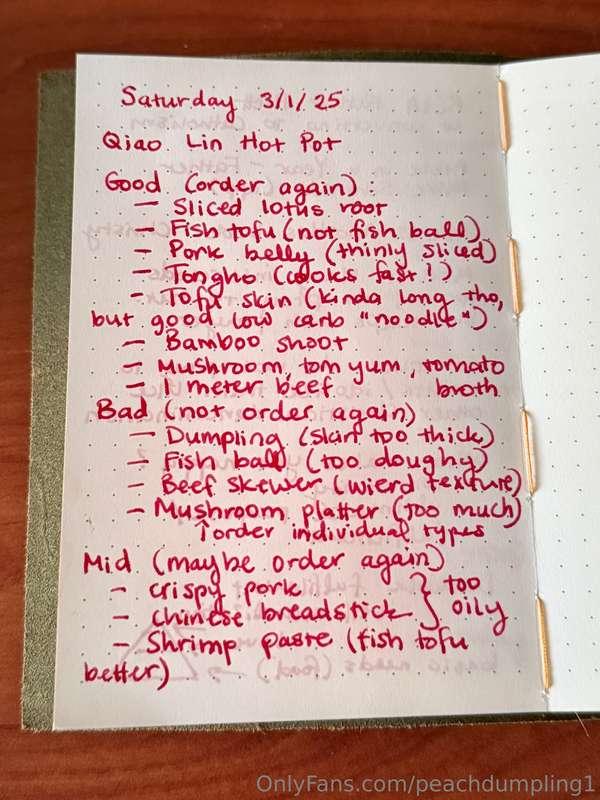 Saturday 3/1/25
Qiao Lin Hot Pot
Good (order again):
- Sliced lotus root
- Fish tofu (not fish ball)
- Pork belly (thinly sliced)
- Tongho (cooks fast!)
- Tofu skin (kinda long tho,
but good low carb "noodle")
- Bamboo shoot
- Mushroom, tom yum, tomato
broth
- 1 meter beef
Bad (not order again)
- Dumpling (skin too thick)
- Fish ball (too doughy)
- Beef skewer (wierd texture)
- Mushroom platter (too much)
↑order individual types
Mid (maybe order again)
- crispy pork
- chinese breadstick
} too
oily
- Shrimp paste (fish tofu
better)
OnlyFans.com/peachdumpling1